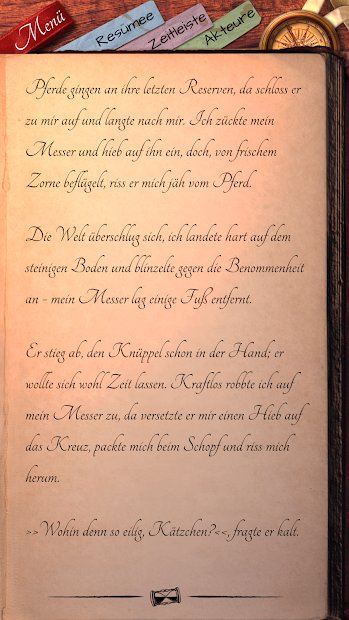 Menü
Resümee
Zeitleiste
Akteure
Pferde gingen an ihre letzten Reserven, da schloss er
zu mir auf und langte nach mir. Ich zückte mein
Messer und hieb auf ihn ein, doch, von frischem
Zorne beflügelt, riss er mich jäh vom Pferd.
Die Welt überschlug sich, ich landete hart auf dem
steinigen Boden und blinzelte gegen die Benommenheit
an - mein Messer lag einige Fuß entfernt.
Er stieg ab, den Knüppel schon in der Hand; er
wollte sich wohl Zeit lassen. Kraftlos robbte ich auf
mein Messer zu, da versetzte er mir einen Hieb auf
das Kreuz, packte mich beim Schopf und riss mich
herum.
>>Wohin denn so eilig, Kätzchen?<<, fragte er kalt.